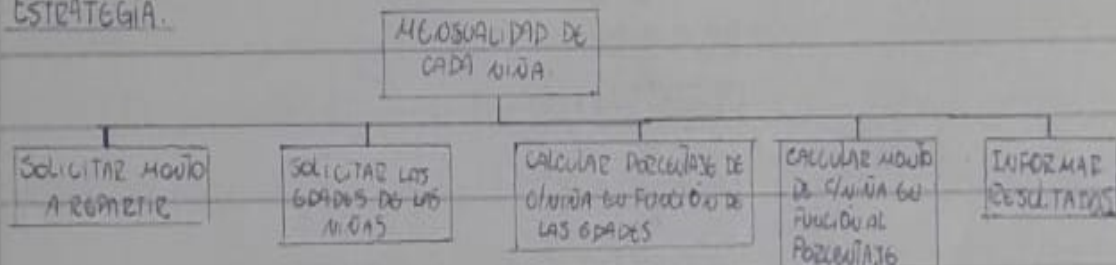 ESTRATEGIA.
MENSUALIDAD DE
CADA NIÑA.
SOLICITAR MONTO
A REPARTIR
SOLICITAR LAS
EDADES DE LAS
NIÑAS
CALCULAR PORCENTAJE DE
C/NIÑA EN FUNCIÓN DE
LAS EDADES
CALCULAR MONTO
DE C/NIÑA EN
FUNCION AL
PORCENTAJE
INFORMAR
RESULTADOS